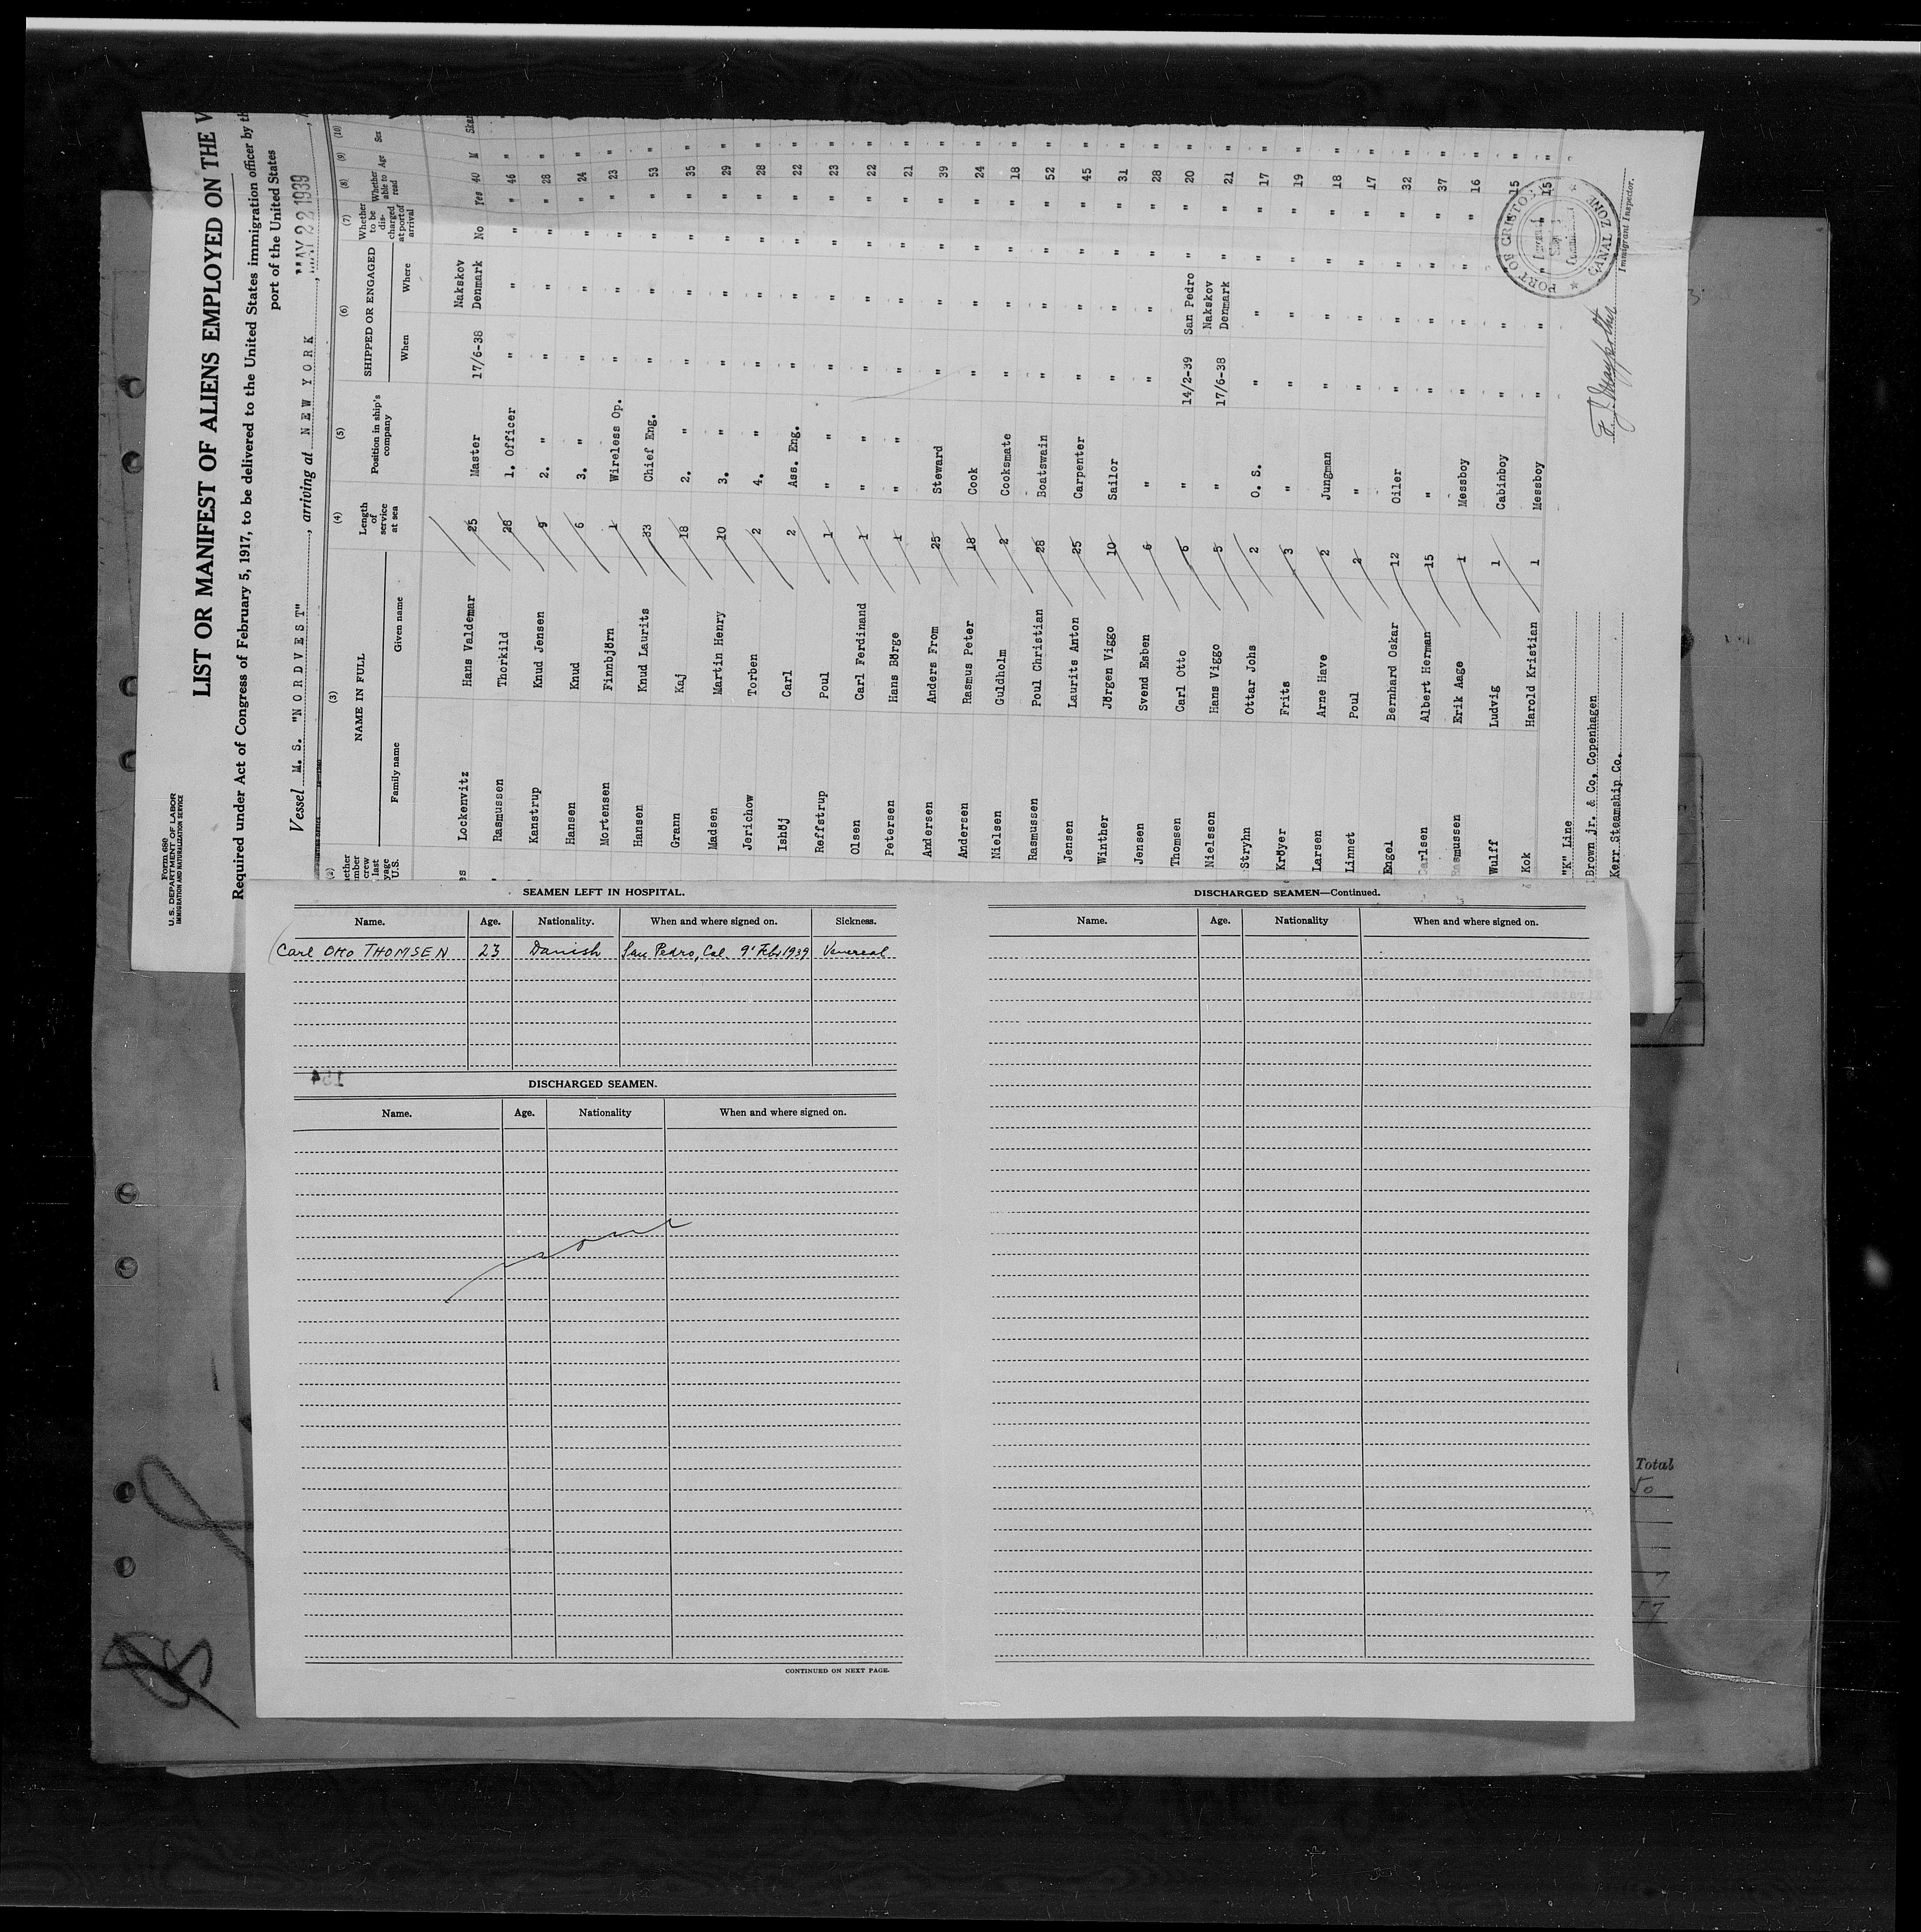 Form 680
U. S. DEPARTMENT OF LABOR
IMMIGRATION AND NATURALIZATION SERVICE
LIST OR MANIFEST OF ALIENS EMPLOYED ON THE
Required under Act of Congress of February 5, 1917, to be delivered to the United States immigration officer by
port of the United States
Vessel M. S. "NORDVEST", arriving at NEW YORK, MAY 22 1939
(3) (4) (5) (6) (7) (8) (9) (10)
NAME IN FULL Length of service at sea Position in ship's company SHIPPED OR ENGAGED Whether to be discharged at port of arrival Whether able to read Age Sex
Family name Given name When Where
Nakskov
Lockenvitz Hans Valdemar 25 Master 17/6-38 Denmark No Yes 40 M
Rasmussen Thorkild 28 1. Officer " " " " 46 "
Kanstrup Knud Jensen 9 2. " " " " " 28 "
Hansen Knud 6 3. " " " " " 24 "
Mortensen Finnbjörn 1 Wireless Op. " " " " 23 "
Hansen Knud Laurits 33 Chief Eng. " " " " 53 "
Grann Kaj 18 2. " " " " " 35 "
Madsen Martin Henry 10 3. " " " " " 29 "
Jerichow Torben 2 4. " " " " " 28 "
Ishöj Carl 2 Ass. Eng. " " " " 22 "
Reffstrup Poul 1 " " " " " 23 "
Olsen Carl Ferdinand 1 " " " " " 22 "
Petersen Hans Börge 1 " " " " " 21 "
Andersen Anders From 25 Steward " " " " 39 "
Andersen Rasmus Peter 18 Cook " " " " 24 "
Nielsen Guldholm 2 Cooksmate " " " " 18 "
Rasmussen Poul Christian 28 Boatswain " " " " 52 "
Jensen Laurits Anton 25 Carpenter " " " " 45 "
Winther Jörgen Viggo 10 Sailor " " " " 31 "
Jensen Svend Esben 6 " " " " " 28 "
Thomsen Carl Otto 6 " 14/2-39 San Pedro " " 20 "
Nakskov
Nielsson Hans Viggo 5 " 17/6-38 Denmark " " 21 "
Stryhn Ottar Johs 2 O. S. " " " " 17 "
Kröyer Frits 3 " " " " " 19 "
Larsen Arne Have 2 Jungman " " " " 18 "
Linnet Poul 2 " " " " " 17 "
Engel Bernhard Oskar 12 Oiler " " " " 32 "
Carlsen Albert Herman 15 " " " " " 37 "
Rasmussen Erik Aage 1 Messboy " " " " 16 "
Wulff Ludvig 1 Cabinboy " " 15 "
Kok Harold Kristian 1 Messboy " " " 15 "
"K" Line
Brown jr. & Co, Copenhagen
Kerr Steamship Co.
Immigrant Inspector.
PORT OF CRISTOBAL
CANAL ZONE
SEAMEN LEFT IN HOSPITAL.
Name. Age. Nationality. When and where signed on. Sickness.
Carl Otto THOMSEN 23 Danish San Pedro, Cal. 9' Feb 1939 Venereal
154
DISCHARGED SEAMEN.
Name. Age. Nationality When and where signed on.
none
CONTINUED ON NEXT PAGE.
DISCHARGED SEAMEN—Continued.
Name. Age. Nationality When and where signed on.
Total
50
7
57